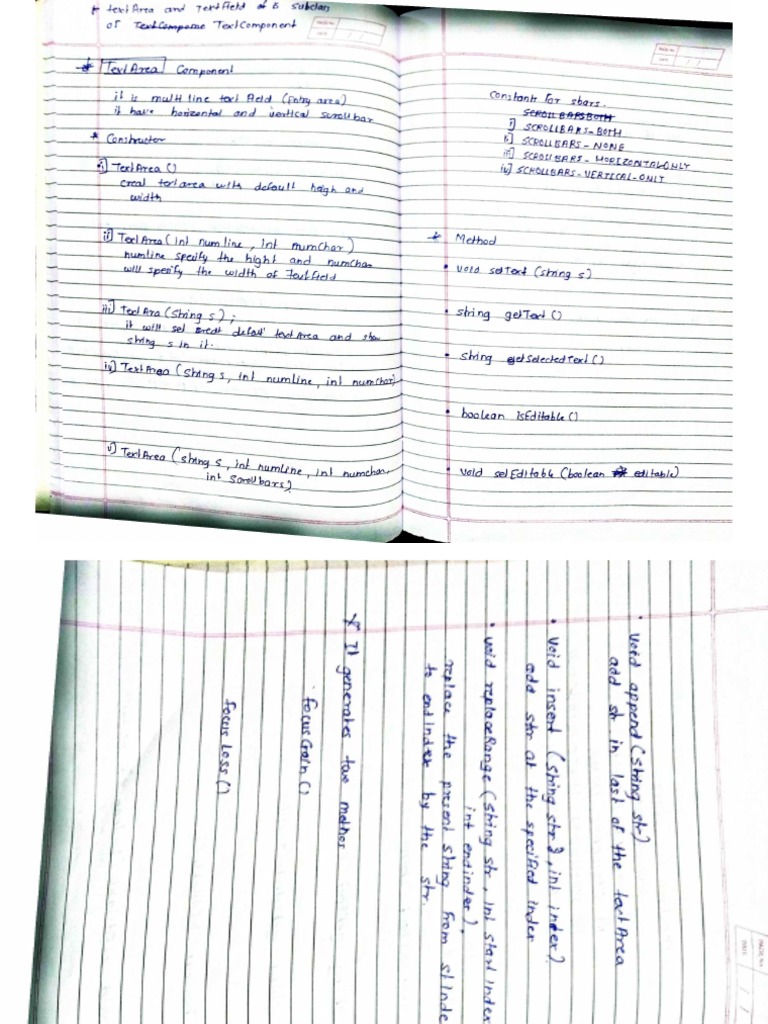 * textArea and TextField is subclass
of TextCompone TextComponent
* TextArea Component
it is multi line text field (Entry area)
it have horizental and vertical scrollbar
* Constructor
i) TextArea ()
creat textarea with default heigh and
width
ii) TextArea (int numline, int numChar)
numline specify the hight and numchar
will specify the width of Textfield
iii) TextAra (String s);
it will set defalt textArea and show
string s in it.
iv) TextArea (String s, int numline, int numchar)
v) TextArea (string s, int numline, int numchar,
int scrollbars)
PAGE No.
DATE
Constants for sbars.
SCROLLBARSBOTH
i) SCROLLBARS-BOTH
ii) SCROLLBARS-NONE
iii) SCROLLBARS-HORIZONTALONLY
iv) SCROLLBARS-VERTICAL-ONLY
* Method
• void setText (string s)
• string getText ()
• string getSelectedText ()
• boolean isEditable ()
• void setEditable (boolean editable)
PAGE No.
DATE
• Void append (String str)
add str in last of the textArea
• Void insert (String str, int index)
add str at the specified index
• void replaceRange (String str, int start index
int endindex).
replace the present string from stinde
to endindex by the str.
* It generates two mothor
• focusGain ()
focus Loss ()
PAGE No.
DATE